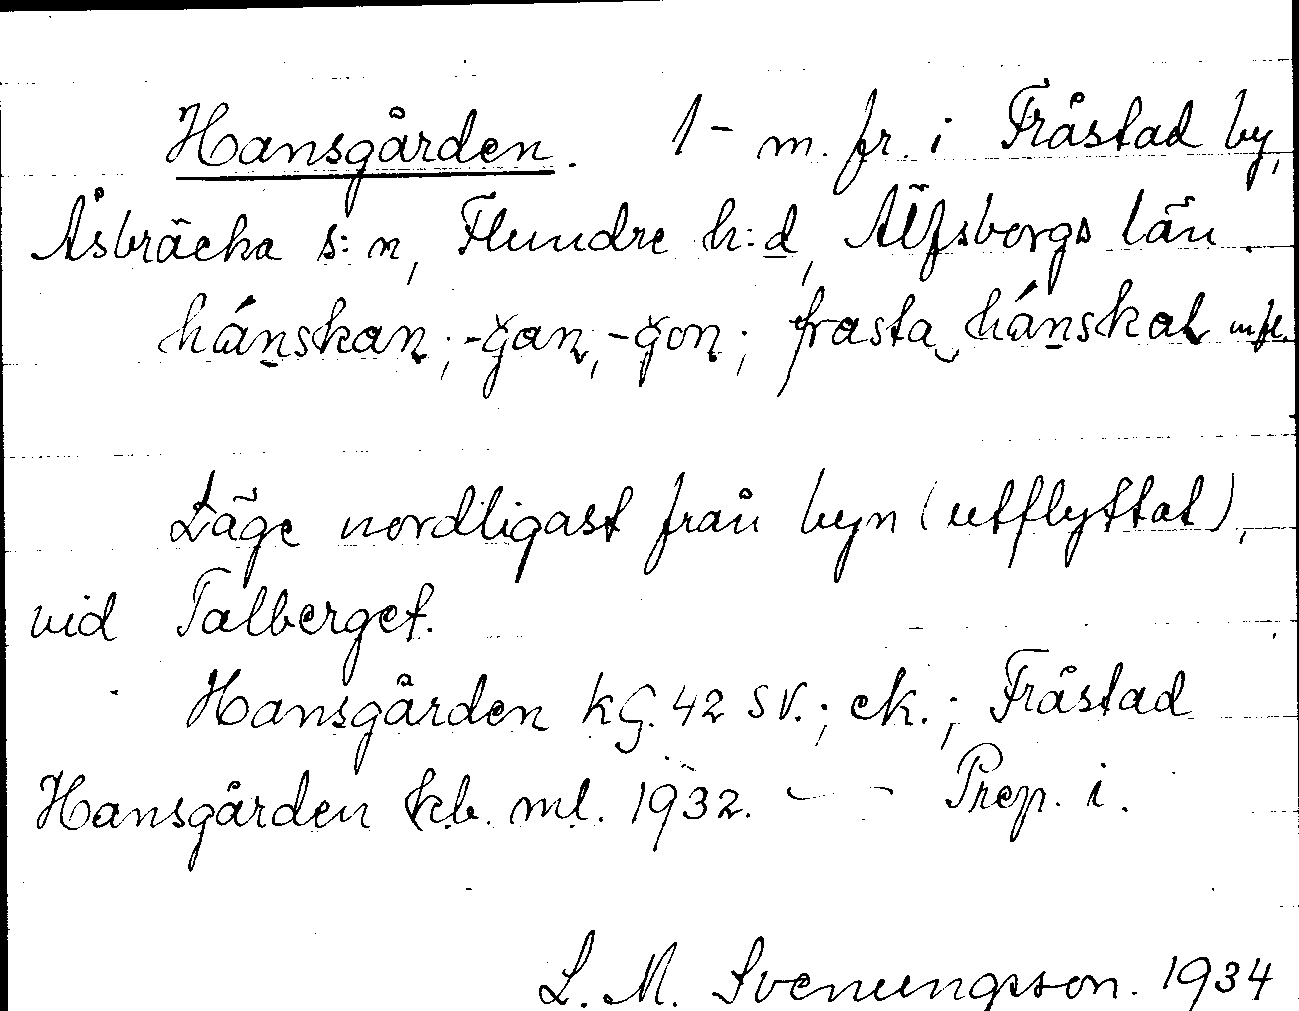 Hansgården. 1-m. fr. i Fråstad by,
Åsbräcka s:n, Flundre h:d, Älfsborgs län.
hánskan; -gan, -gon; frasta hánskal m.fl.
Läge nordligast från byn (utflyttat),
vid Talberget.
Hansgården kG. 42 SV.; ek.; Fråstad
Hansgården kb. ml. 1932. - - Prep. i.
L. M. Svenungsson. 1934